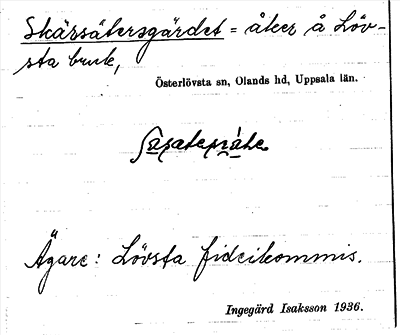 Skärsätersgärdet = åker å Löv-
sta bruk,
Österlövsta sn, Olands hd, Uppsala län.
Ägare: Lövsta fideikommis.
Ingegärd Isaksson 1936.